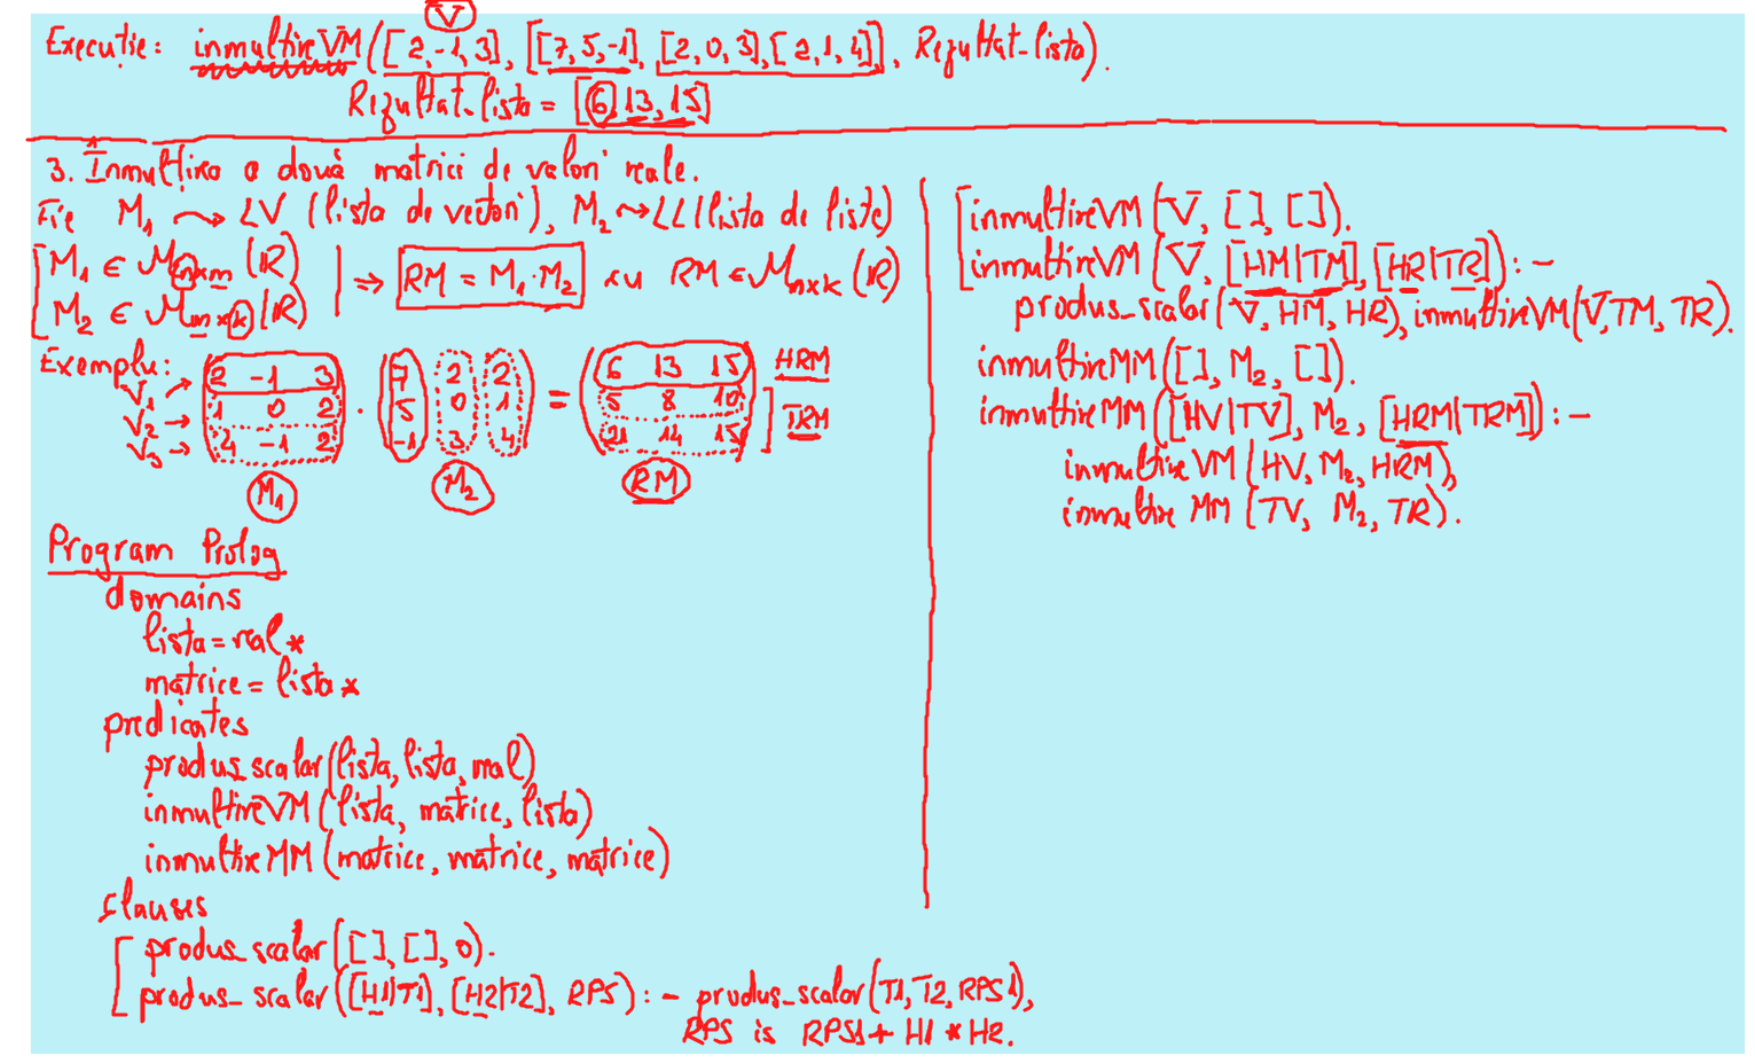 V
Execuție: inmultireVM([2,-1,3], [[7,5,-1], [2,0,3],[2,1,4]], Rezultat_lista).
Rezultat_lista = [6,13,15]
3. Înmulțirea a două matrici de valori reale.
Fie M1 ⤳ LV (lista de vectori), M2 ⤳ LL (lista de liste)
M1 ∈ Mnxm (R)
M2 ∈ Mmxk (R)
⇒ RM = M1·M2 cu RM ∈ Mnxk (R)
Exemplu:
V1 → 2 -1 3
V2 → 1 0 2
V3 → 4 -1 2
M1
·
7 2 2
5 0 1
-1 3 4
M2
=
6 13 15 HRM
5 8 10
21 14 15 TRM
RM
Program Prolog
domains
lista = real *
matrice = lista *
predicates
produs_scalar(lista, lista, real)
inmultireVM(lista, matrice, lista)
inmultireMM(matrice, matrice, matrice)
clauses
produs_scalar([ ], [ ], 0).
produs_scalar([H1|T1], [H2|T2], RPS) :- produs_scalar(T1, T2, RPS1),
RPS is RPS1 + H1 * H2.
inmultireVM(V, [ ], [ ]).
inmultireVM(V, [HM|TM], [HR|TR]) :-
produs_scalar(V, HM, HR), inmultireVM(V, TM, TR).
inmultireMM([ ], M2, [ ]).
inmultireMM([HV|TV], M2, [HRM|TRM]) :-
inmultireVM(HV, M2, HRM),
inmultireMM(TV, M2, TR).